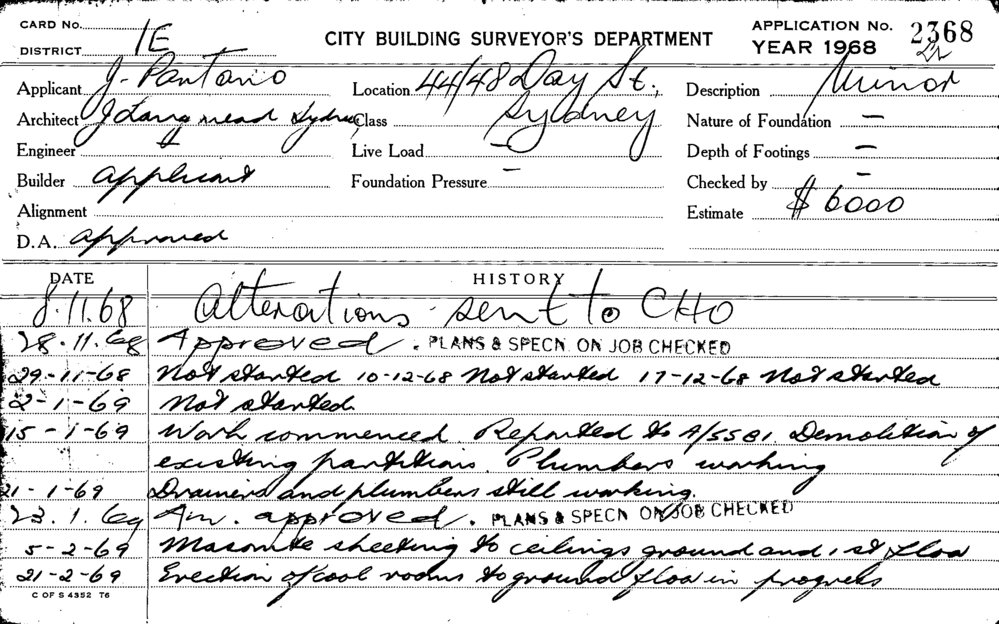 CARD No.
DISTRICT 1E
CITY BUILDING SURVEYOR'S DEPARTMENT
APPLICATION No. 2368
YEAR 1968
Applicant J. Pantano
Location 44/48 Day St.,
Description Minor
Architect J Langmead Sydney
Class Sydney
Nature of Foundation —
Engineer
Live Load —
Depth of Footings —
Builder applicant
Foundation Pressure —
Checked by —
Alignment
Estimate $ 6000
D.A. approved
DATE HISTORY
8.11.68 Alterations sent to CHO
28.11.68 Approved. PLANS & SPECN. ON JOB CHECKED
29-11-68 Not started 10-12-68 Not started 17-12-68 Not started
2-1-69 Not started
15-1-69 Work commenced. Reported to A/SSBI. Demolition of
existing partitions. Plumbers working
21-1-69 Drainers and plumbers still working.
23.1.69 Am. approved. PLANS & SPECN ON JOB CHECKED
5-2-69 Masonite sheeting to ceilings ground and 1st floor
21-2-69 Erection of cool rooms to ground floor in progress
C OF S 4352 T6